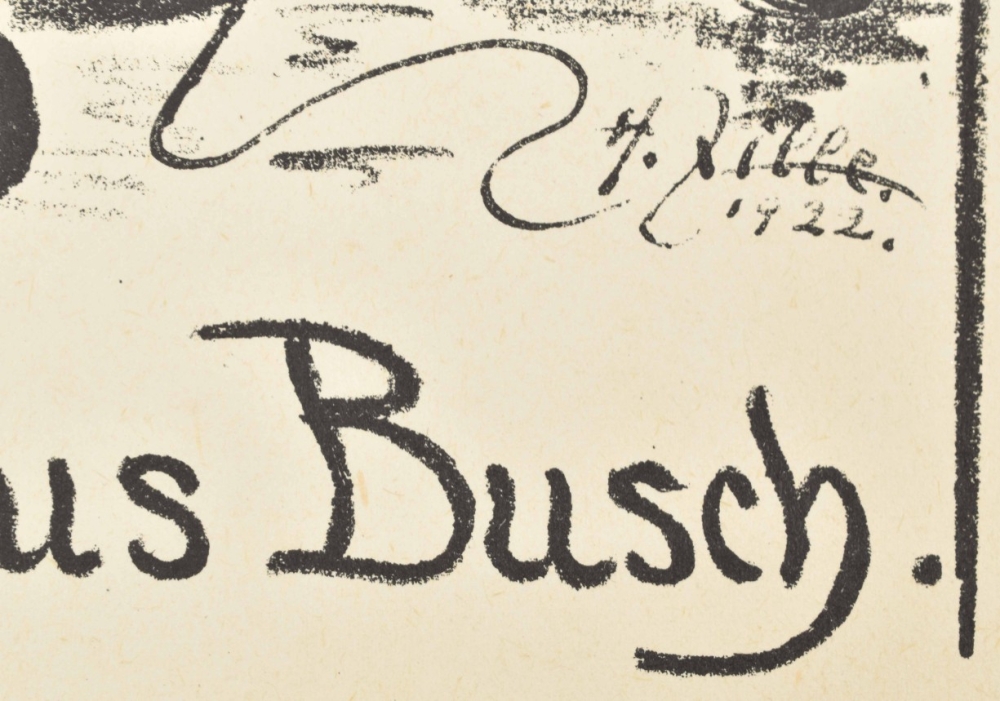 H. Zille.
1922.
us Busch.